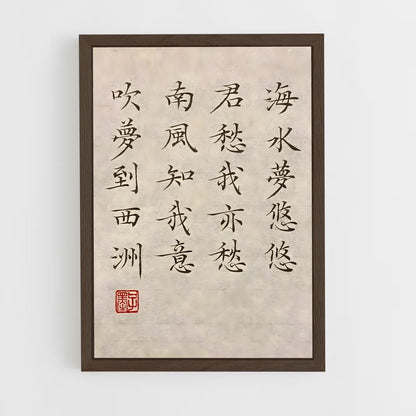 海水夢悠悠
君愁我亦愁
南風知我意
吹夢到西洲